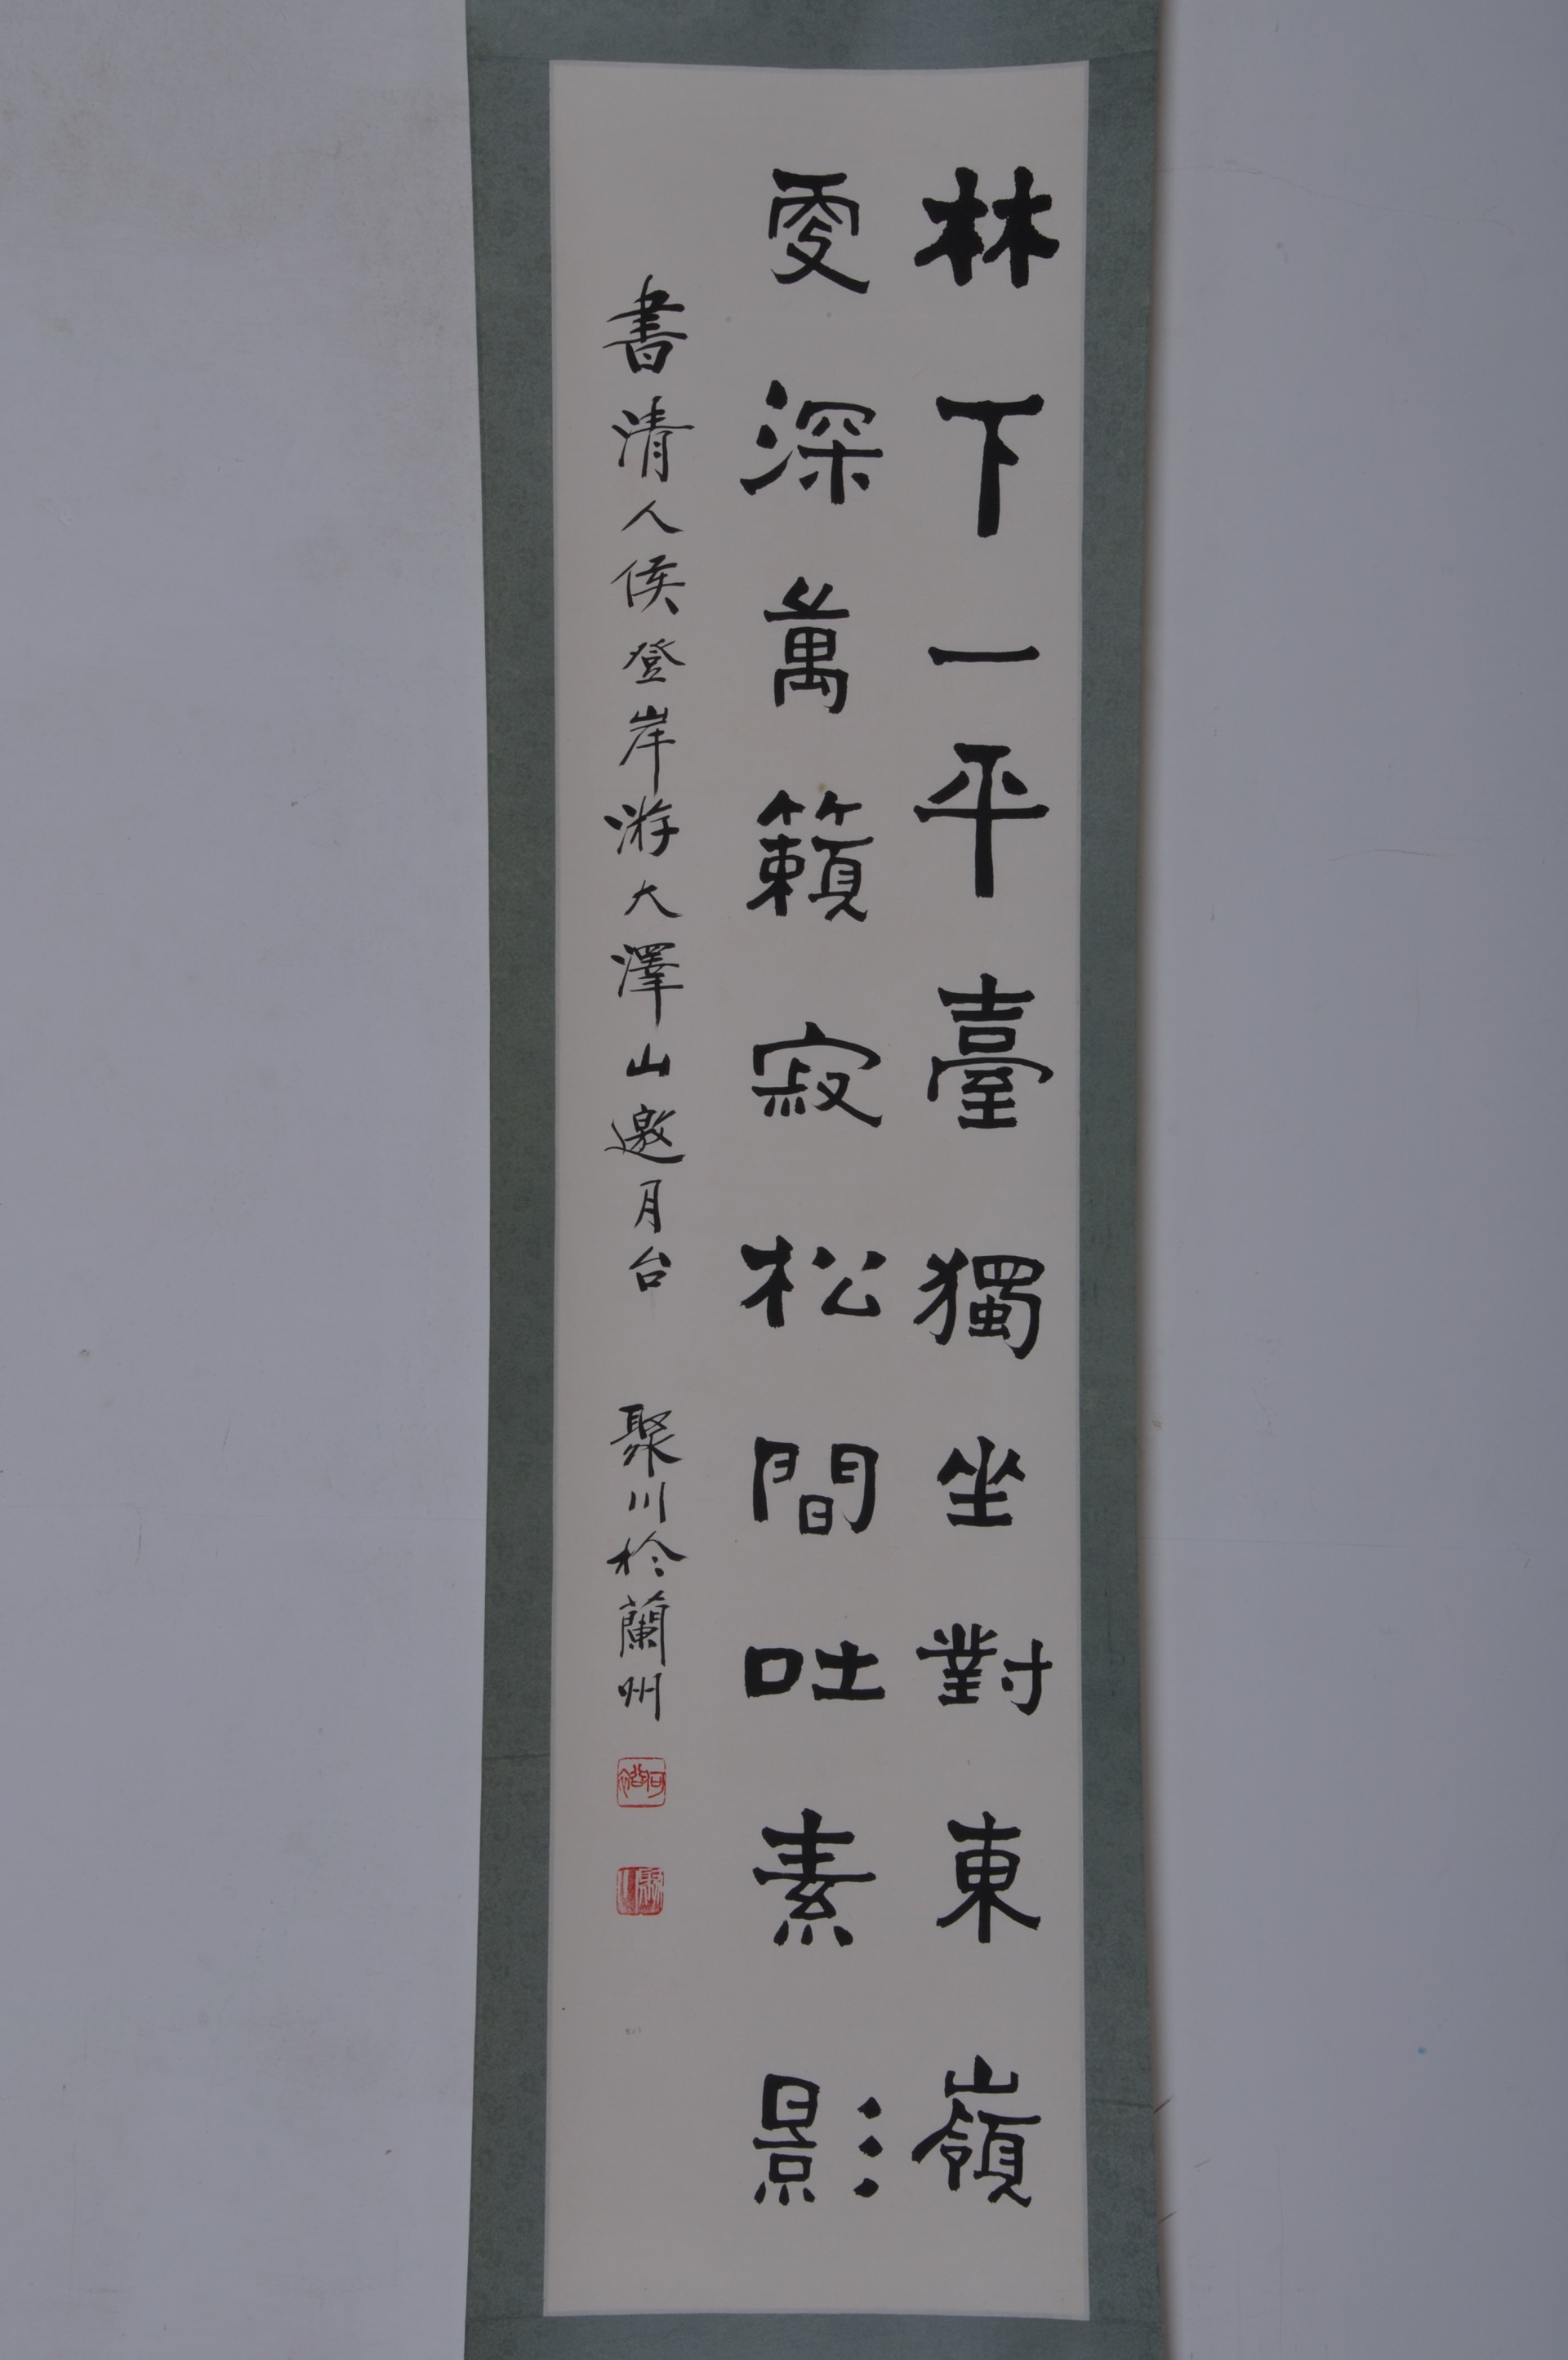 林下一平臺獨坐對東嶺
更深萬籟寂松間吐素影
書清人侯登岸游大澤山邀月台 聚川於蘭州